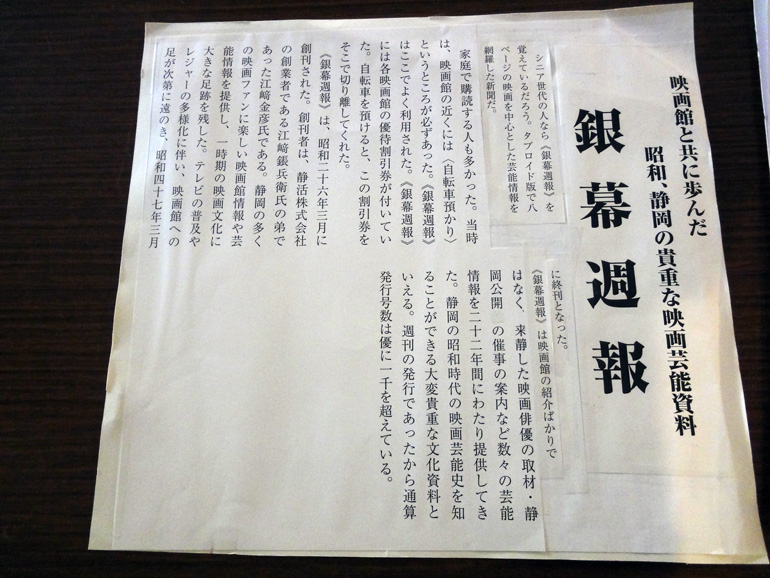 映画館と共に歩んだ
昭和、静岡の貴重な映画芸能資料
銀幕週報
シニア世代の人なら《銀幕週報》を
覚えているだろう。タブロイド版で八
ページの映画を中心とした芸能情報を
網羅した新聞だ。
家庭で購読する人も多かった。当時
は、映画館の近くには〈自転車預かり〉
というところが必ずあった。《銀幕週報》
はここでよく利用された。《銀幕週報》
には各映画館の優待割引券が付いてい
た。自転車を預けると、この割引券を
そこで切り離してくれた。
《銀幕週報》は、昭和二十六年三月に
創刊された。創刊者は、静活株式会社
の創業者である江﨑鋹兵衛氏の弟で
あった江﨑金彦氏である。静岡の多く
の映画ファンに楽しい映画館情報や芸
能情報を提供し、一時期の映画文化に
大きな足跡を残した。テレビの普及や
レジャーの多様化に伴い、映画館への
足が次第に遠のき、昭和四十七年三月
に終刊となった。
《銀幕週報》は映画館の紹介ばかりで
はなく、来静した映画俳優の取材・静
岡公開 の催事の案内など数々の芸能
情報を二十二年間にわたり提供してき
た。静岡の昭和時代の映画芸能史を知
ることができる大変貴重な文化資料と
いえる。週刊の発行であったから通算
発行号数は優に一千を超えている。